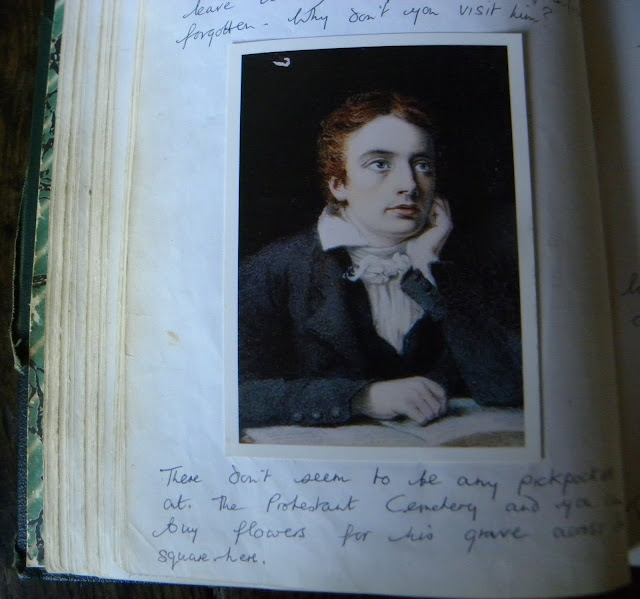 leave
forgotten. Why don't you visit him?
There don't seem to be any pickpocke
at. The Protestant Cemetery and you
buy flowers for his grave across
square here.